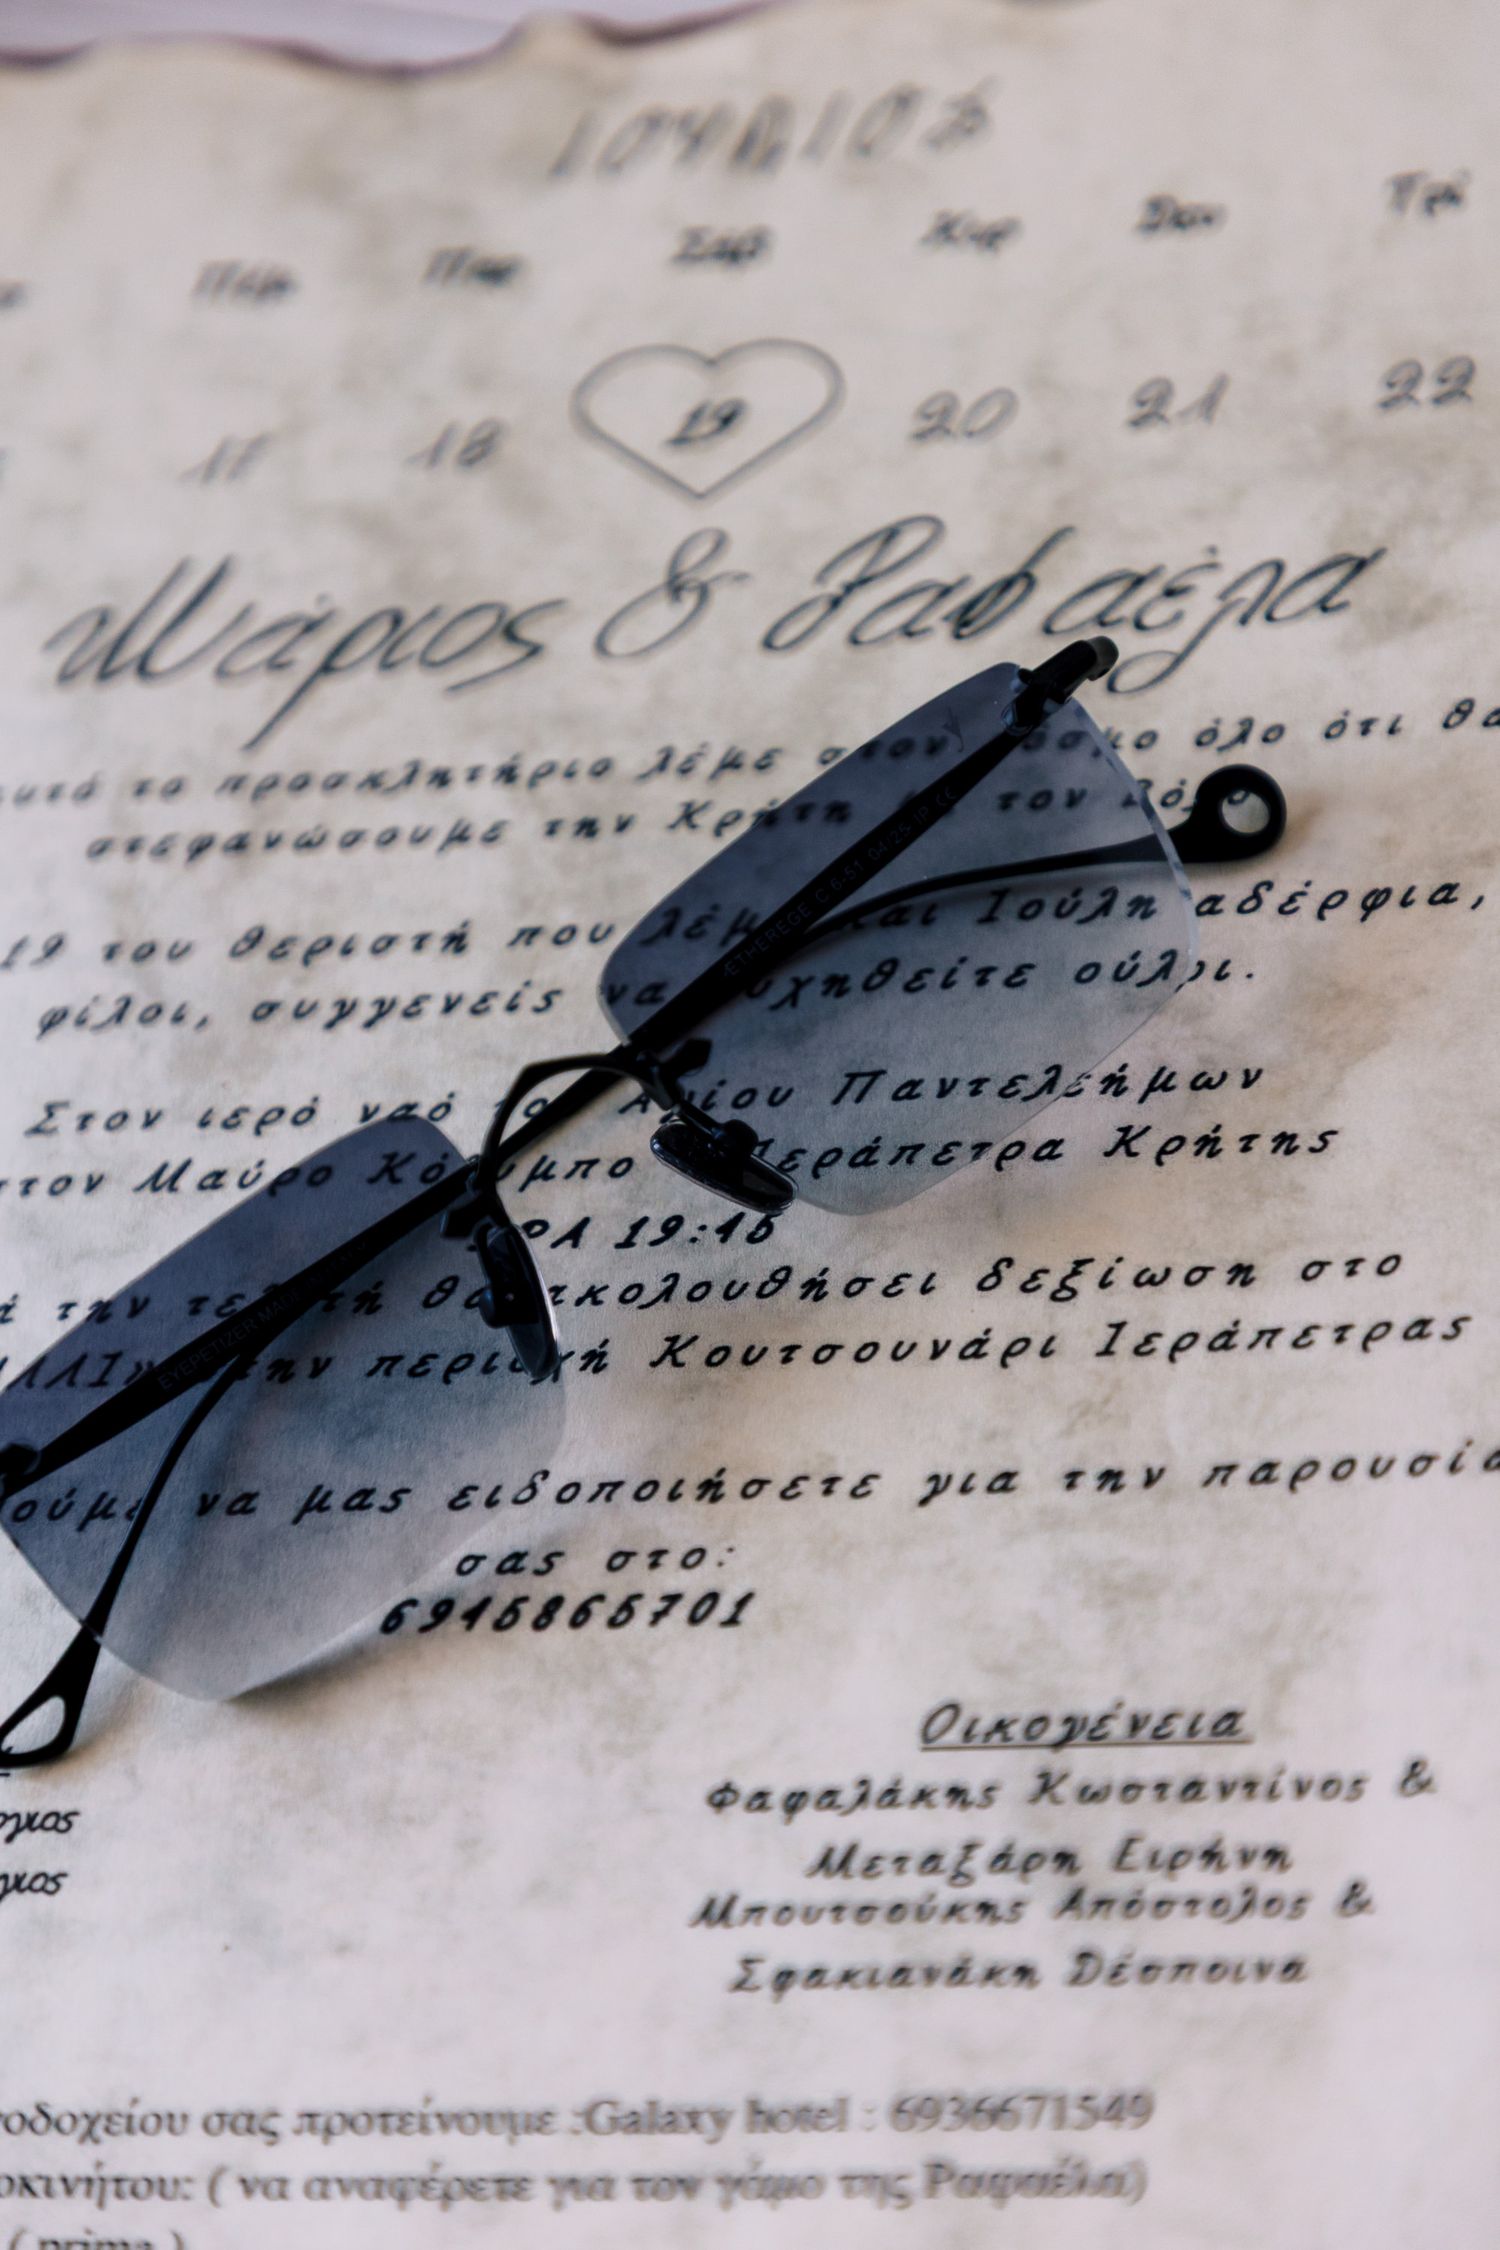 ΙΟΥΛΙΟΣ
Πέμ Παρ Σαβ Κυρ Δευ Τρί
17 18 19 20 21 22
Μάριος & Ραφαέλα
αυτό το προσκλητήριο λέμε στον κόσμο όλο ότι θα
στεφανώσουμε την Κρήτη τον Βόλο
19 του θεριστή που λέμε και Ιούλη αδέρφια,
φίλοι, συγγενείς να ευχηθείτε ούλοι.
Στον ιερό ναό του Αγίου Παντελεήμων
στον Μαύρο Κόλυμπο Ιεράπετρα Κρήτης
ΩΡΑ 19:45
την τελετή θα ακολουθήσει δεξίωση στο
στην περιοχή Κουτσουνάρι Ιεράπετρας
να μας ειδοποιήσετε για την παρουσία
σας στο:
6945865701
ÆTHEREGE C.6-51 04/25 IP CE
EYEPETIZER MADE IN
Οικογένεια
Φαφαλάκης Κωσταντίνος &
Μεταξάρη Ειρήνη
Μπουτσούκης Απόστολος &
Σφακιανάκη Δέσποινα
σας προτείνουμε :Galaxy hotel : 6936671549
( να αναφέρετε για τον γάμο της Ραφαέλα)
( prima )